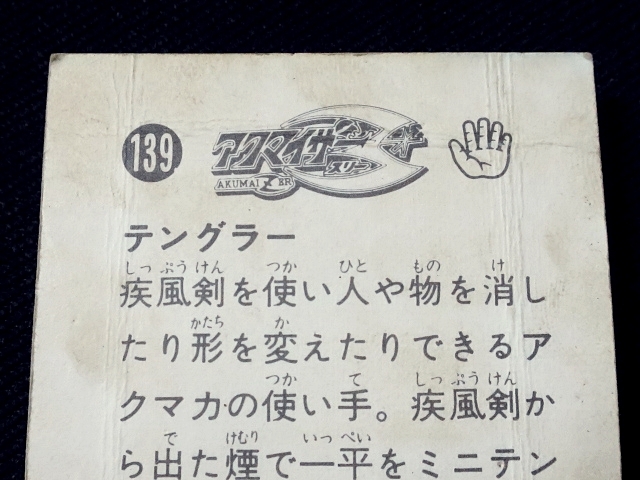 139
アクマイザー3
スリー
AKUMAIZER
テングラー
しっぷうけん つか ひと もの け
疾風剣を使い人や物を消し
かたち か
たり形を変えたりできるア
つか て しっぷうけん
クマカの使い手。疾風剣か
で けむり いっぺい
ら出た煙で一平をミニテン